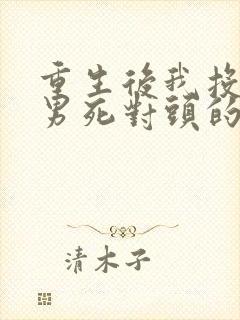 重生後我投
男死對頭的
清木子